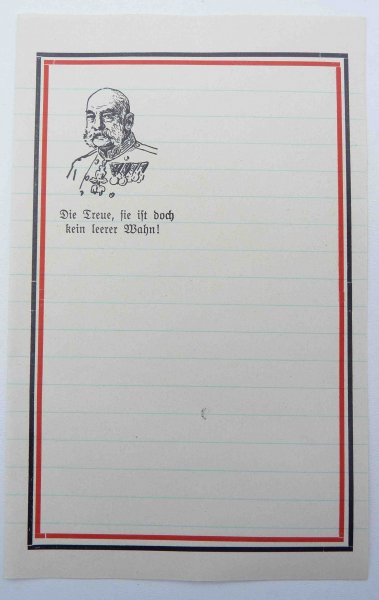 Die Treue, sie ist doch
kein leerer Wahn!